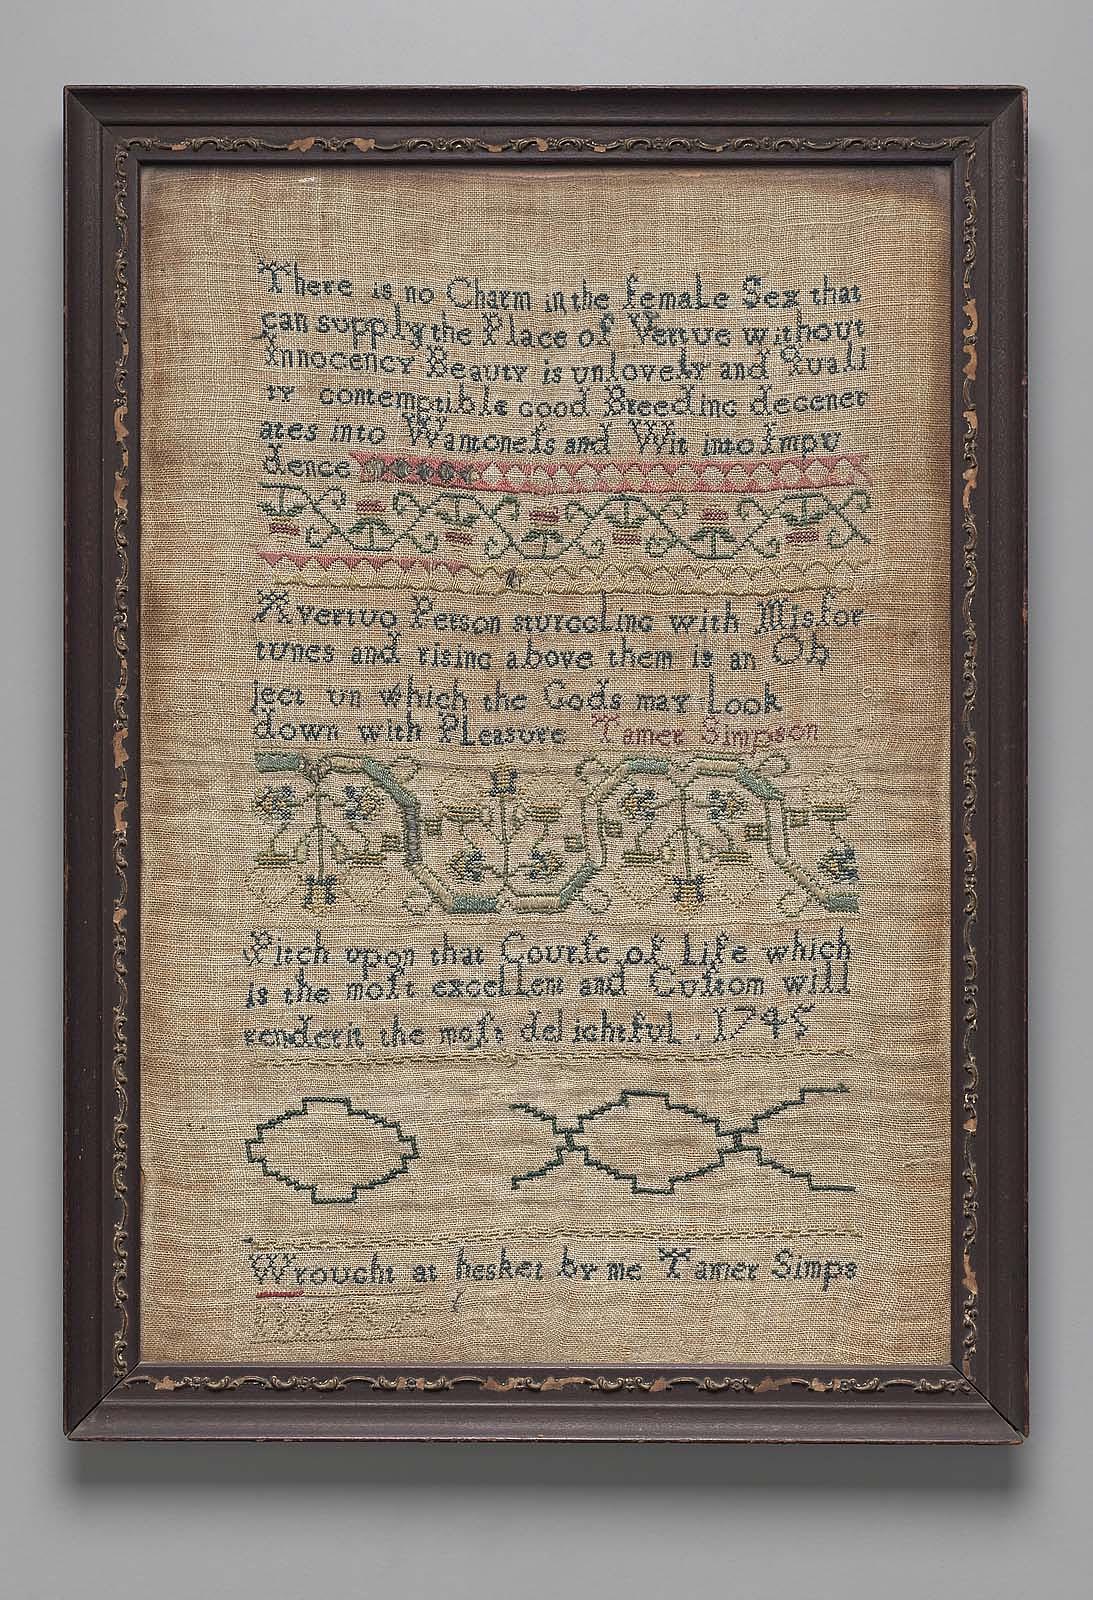 There is no Charm in the female Sex that
can supply the Place of Vertue without
Innocency Beauty is unlovely and Quali
ty contemptible good Breeding degener
ates into Wantoneſs and Wit into Impu
dence
A vertuo Person sturggling with Misfor
tunes and rising above them is an Ob
ject un which the Gods may Look
down with Pleasure Tamer Simpson
Pitch upon that Courſe of Life which
is the moſt excellent and Cuſtom will
render it the moſt delightful . 1745
Wrought at hesket by me Tamer Simps